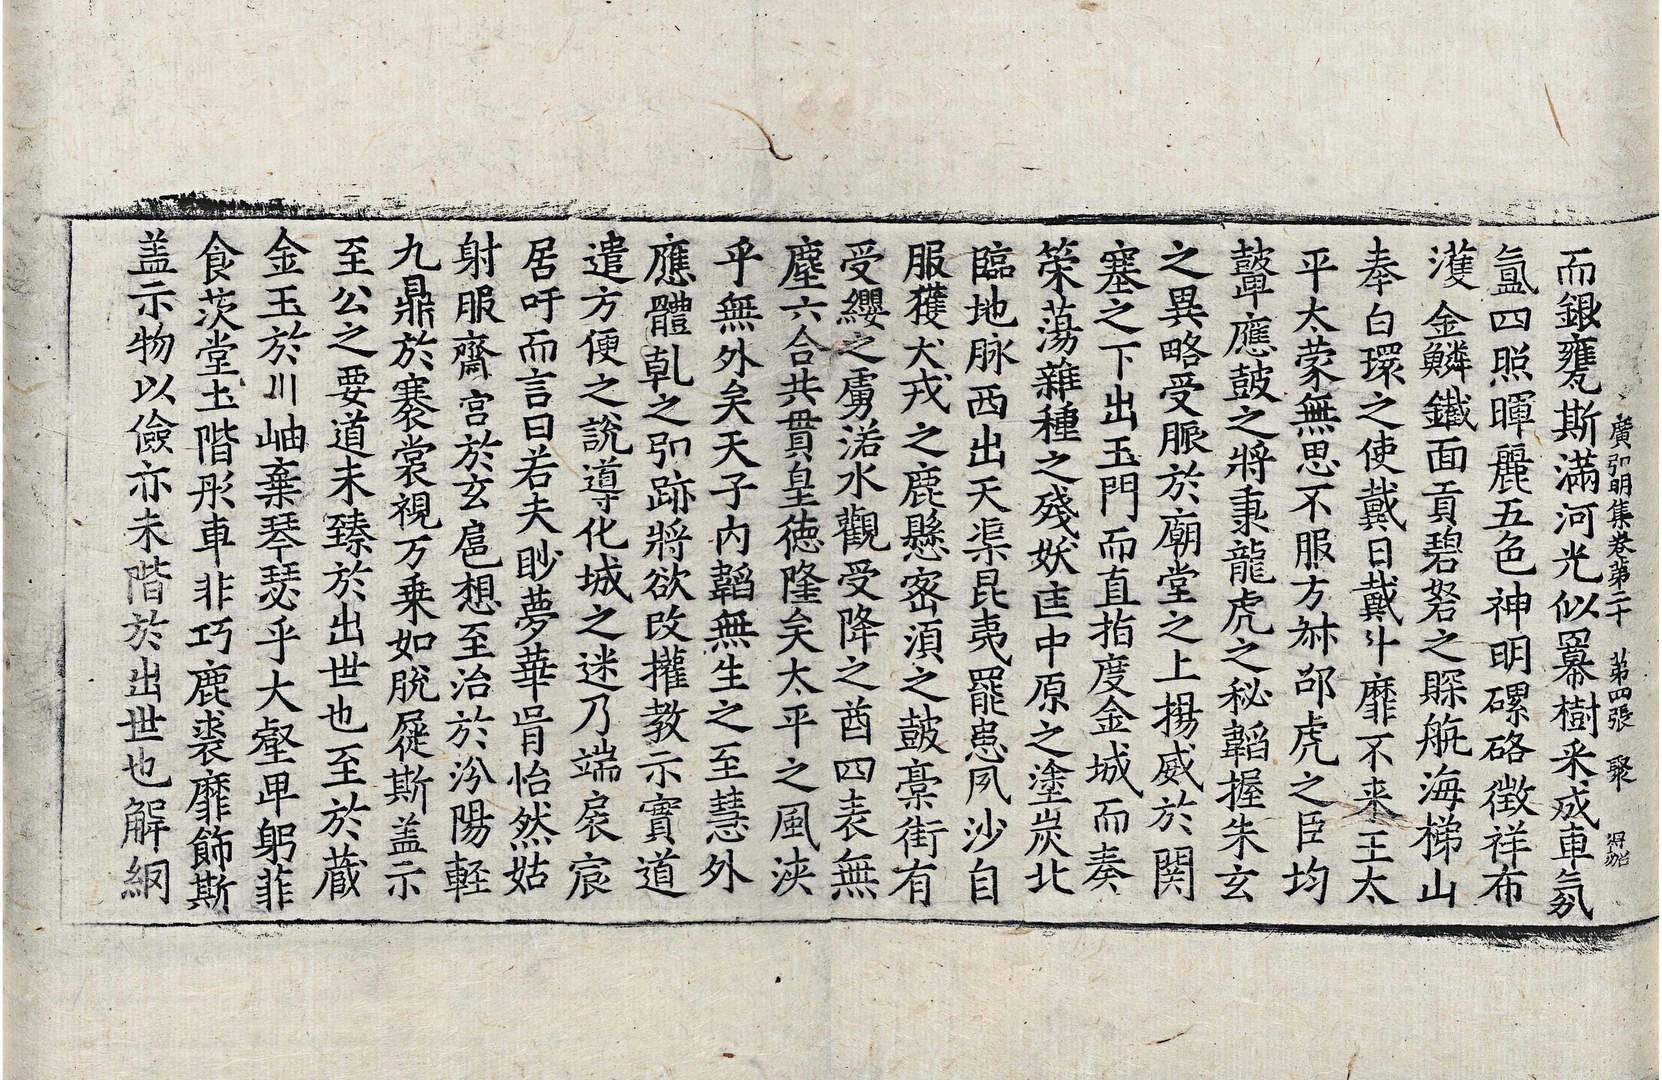 廣弘明集卷第二十 第四張 聚 得劤
而銀甕斯滿河光似羃樹采成車氛
氳四照暉麗五色神明磥硌徵祥布
濩金鱗鐵面貢碧砮之賝航海梯山
奉白環之使戴日戴斗靡不来王太
平太蒙無思不服方叔邵虎之臣均
鼙應鼓之將秉龍虎之秘韜握朱玄
之異略受脤於廟堂之上揚威於閞
塞之下出玉門而直指度金城而奏
策蕩雜種之殘妖匡中原之塗炭北
臨地脉西出天渠昆夷罷患夙沙自
服獲犬戎之鹿懸密湏之鼓藁街有
受纓之虜渃水觀受降之酋四表無
塵六合共貫皇徳隆矣太平之風浹
乎無外矣天子内韜無生之至慧外
應體乹之弘跡將欲改攉教示實道
遣方便之説導化城之迷乃端扆宸
居吁而言曰若夫眇夢華胥怡然姑
射服齋宮於玄扈想至治於汾陽軽
九鼎於褰裳視万乗如脱屣斯盖示
至公之要道未臻於出世也至於蔵
金玉於川岫棄琴瑟乎大壑卑躬菲
食茨堂土階彤車非巧鹿裘靡飾斯
盖示物以儉亦未階於出世也解網